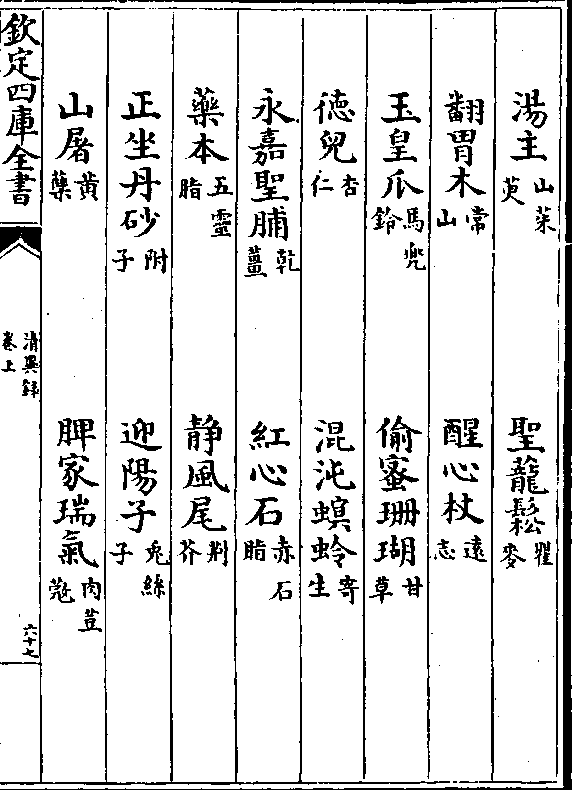 湯主山茱萸　聖蘢鬆瞿麥
翻胃木常山　醒心杖遠志
玉皇瓜馬兜鈴　偷蜜珊瑚甘草
徳兒杏仁　混沌螟蛉寄生
永嘉聖脯乾薑　紅心石赤石脂
藥本五靈脂　静風尾荆芥
正坐丹砂附子　迎陽子兎絲子
山屠黄蘗　脾家瑞氣肉荳蔲
欽定四庫全書
清異録
卷上
六十七